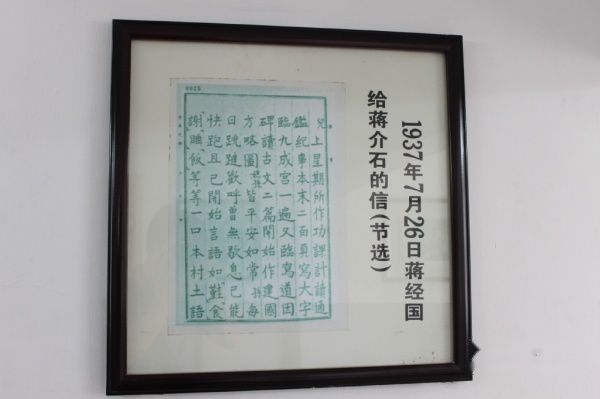 1937年7月26日蒋经国
给蒋介石的信(节选)
兒上星期所作功課計讀通
鑑紀事本末二百頁寫大字
臨九成宮一遍又臨寫道因
碑讀古文二篇開始作建國
方略圖 皆平安如常 孫每
日跳蹤歡呼曾無歇息已能
快跑且已開始言語如鞋食
謝睡飯等等一口本村土語